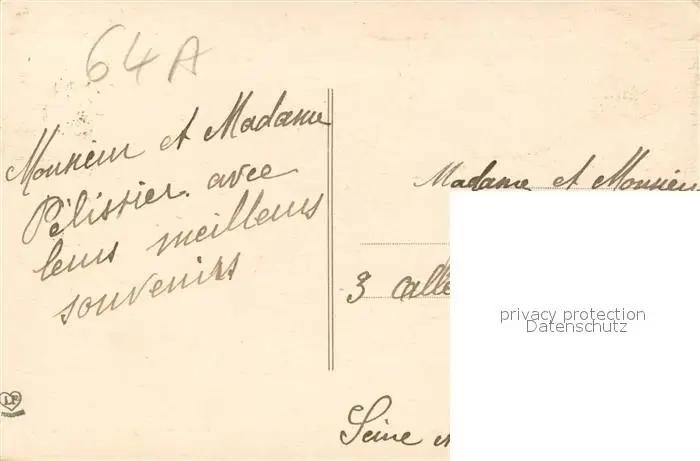 64A
Monsieur et Madame
Pélissier avec
leurs meilleurs
souvenirs
Madame et Monsieur
3 calle
Seine
privacy protection
Datenschutz